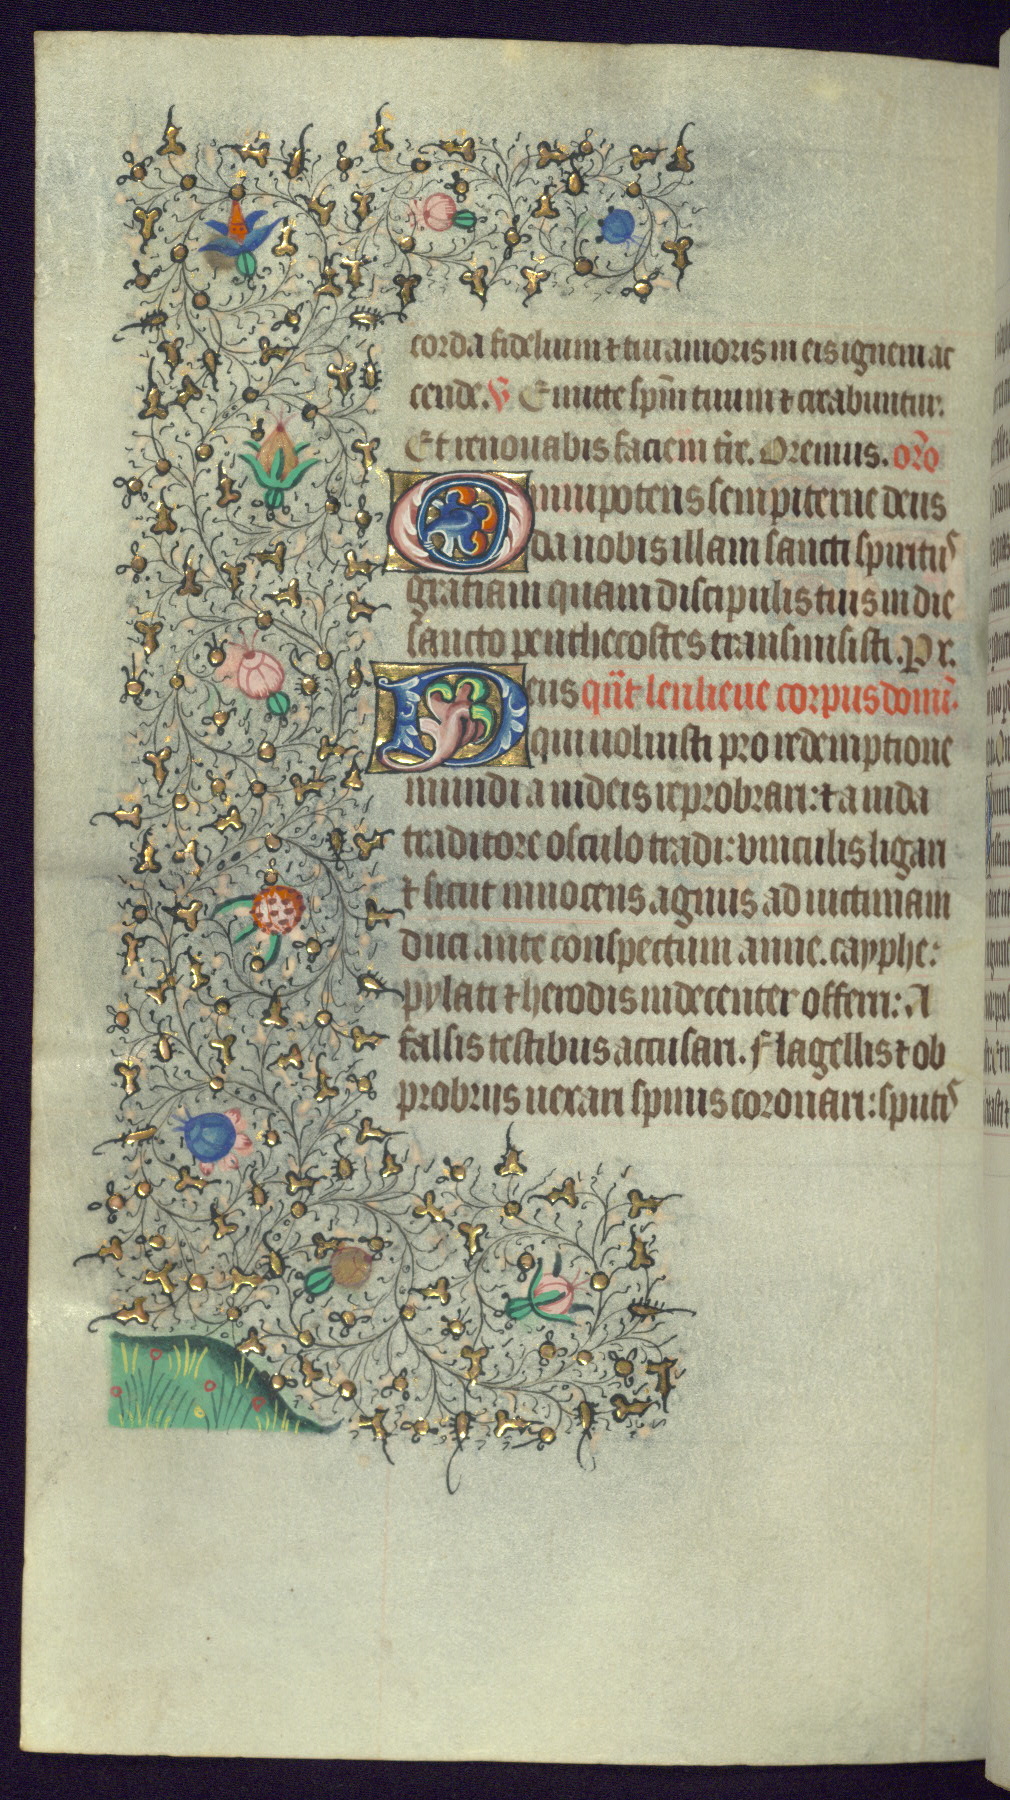 corda fidelium ⁊ tui amoris in eis ignem ac
cende. ℣ Emitte spm̃ tuum ⁊ creabuntur.
Et renouabis faciem tr̃e. Oremus. oro
Omnipotens sempiterne deus
da nobis illam sancti spiritus
gratiam quam discipulis tuis in die
sancto penthecostes transmisisti. Pr.
Deus qñt len lieue corpus domĩ.
qui uoluisti pro redemptione
mundi a iudeis reprobrari: ⁊ a iuda
traditore osculo tradi: vinculis ligari
⁊ sicut innocens agnus ad uictimam
duci ante conspectum anne. cayphe:
pylati ⁊ herodis indecenter offerri: A
falsis testibus accusari. Flagellis ⁊ ob
probriis uexari spinis coronari: sputis